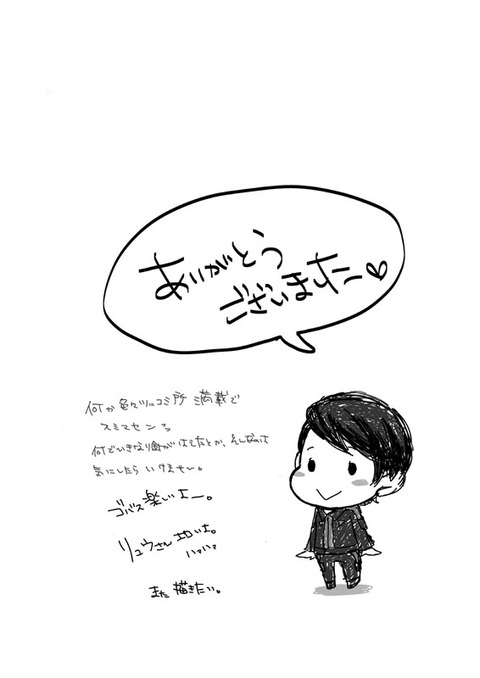 ありがとう
ございました♡
何か色々ツッコミ所満載で
スミマセンz
何でいきなり歯がはえたとか、そんなのは
気にしたらいけません。
ゴバス楽しいよー。
リュウさん
また描きたい。